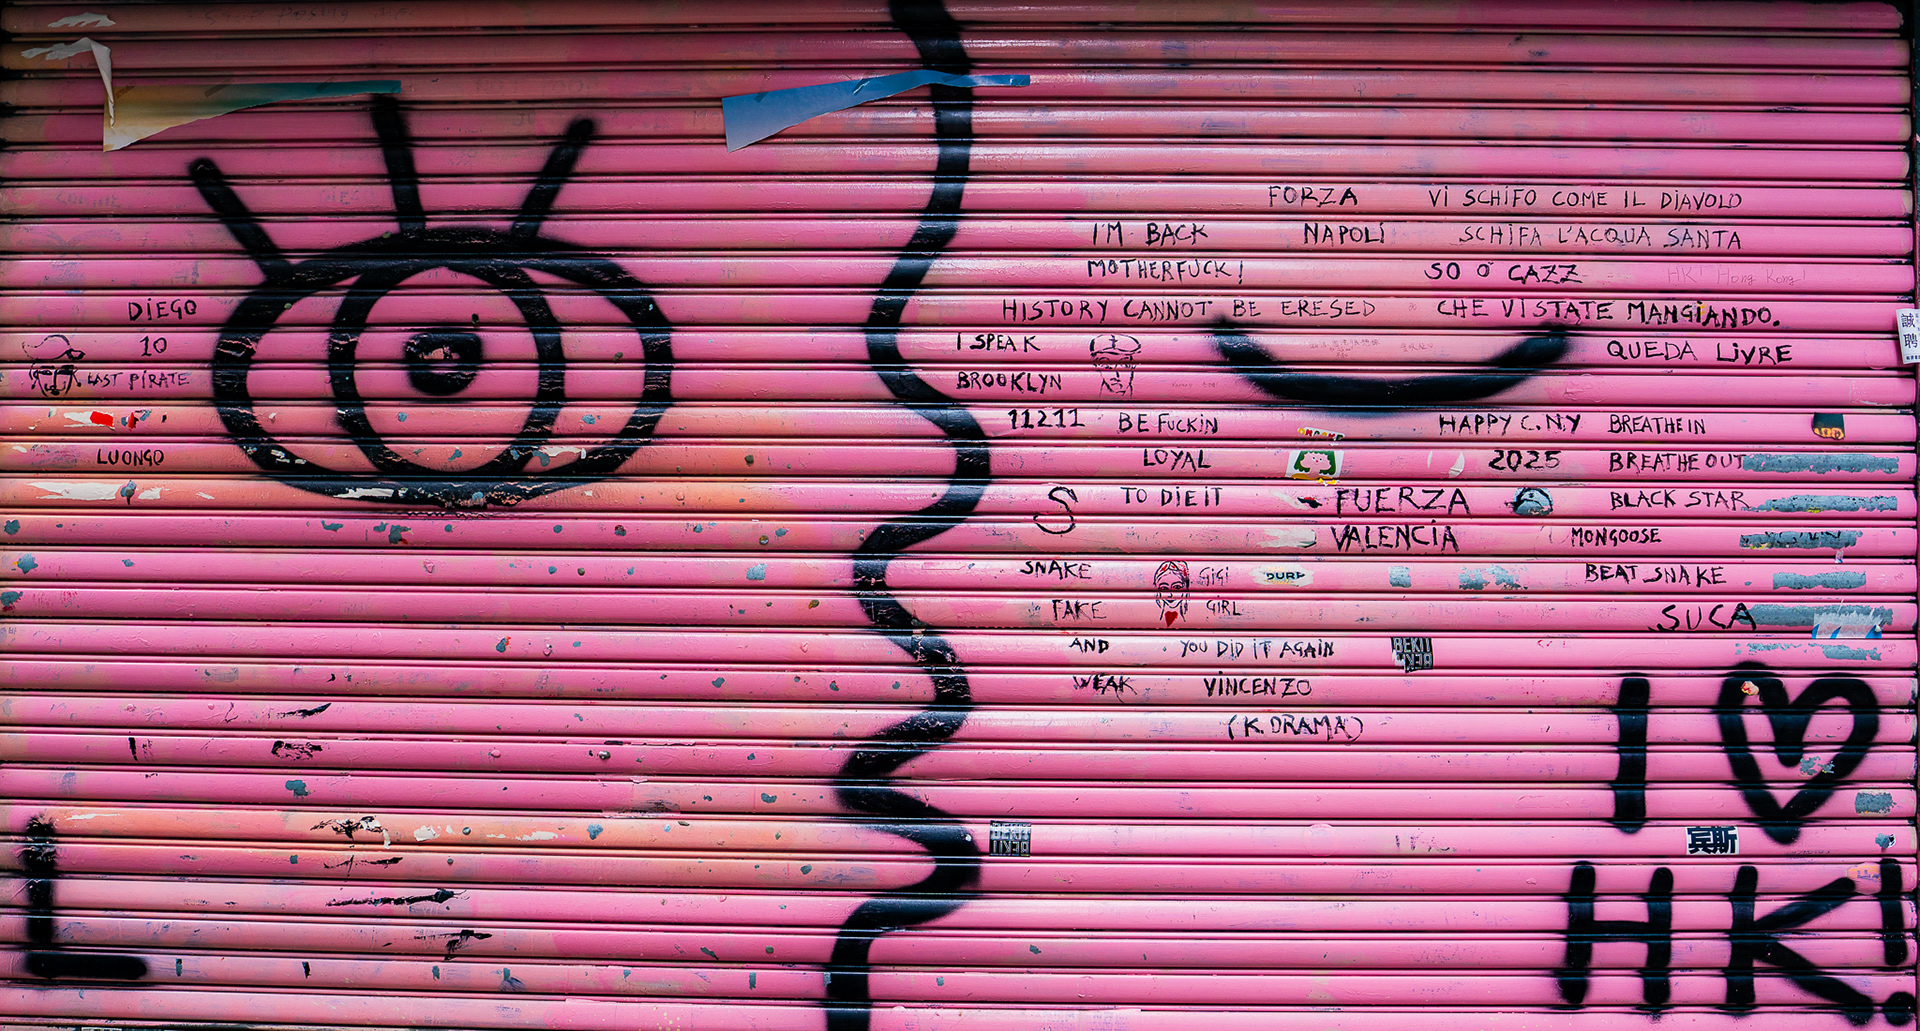 DIEGO
10
LAST PIRATE
LUONGO
L
FORZA
NAPOLI
VI SCHIFO COME IL DIAVOLO
SCHIFA L'ACQUA SANTA
SO O' CAZZ
CHE VI STATE MANGIANDO.
I'M BACK
MOTHERFUCK!
HK! Hong Kong!
HISTORY CANNOT BE ERESED
I SPEAK
BROOKLYN
11211
BE FUCKIN
LOYAL
TO DIE IT
S
SNAKE
FAKE
AND
WEAK
GIGI
GIRL
YOU DID IT AGAIN
VINCENZO
(K. DRAMA)
HAPPY C.N.Y
2025
FUERZA
VALENCIA
QUEDA LIVRE
BREATHE IN
BREATHE OUT
BLACK STAR
MONGOOSE
BEAT SNAKE
SUCA
BEKIT
BEKIT
BEKIT
BEKIT
誠
聘
I
宾斯
HK!